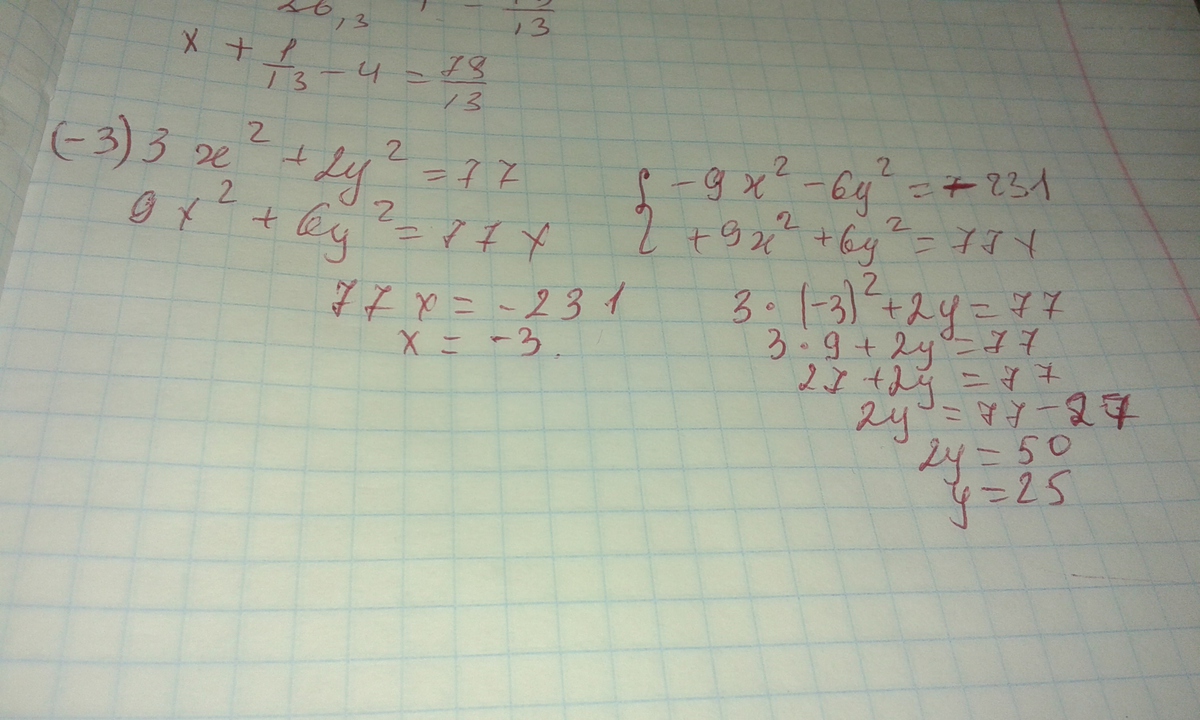 x + 1/13 - 4 = 79/13
(-3) 3x² + 2y² = 77
9x² + 6y² = 77x
{ -9x² - 6y² = -231
+9x² + 6y² = 77x
77x = -231
x = -3.
3·(-3)² + 2y = 77
3·9 + 2y = 77
27 + 2y = 77
2y = 77 - 27
2y = 50
y = 25